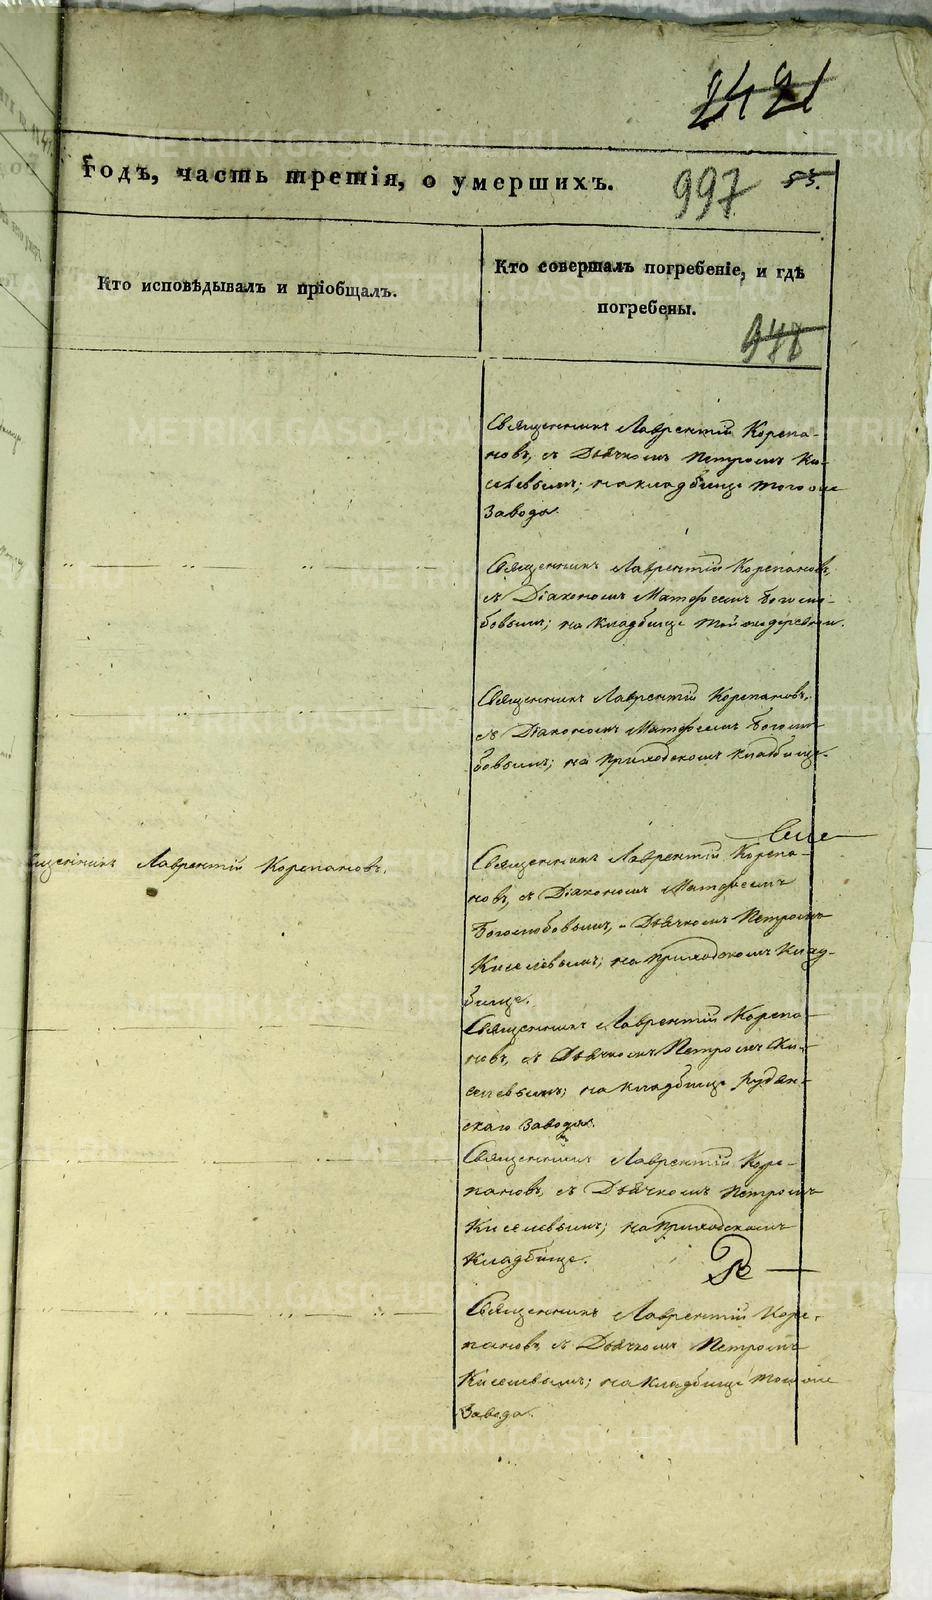 2421
Годъ, часть третія, о умершихъ.
997
83.
Кто исповѣдывалъ и пріобщалъ.
Кто совершалъ погребеніе, и гдѣ
погребены.
948
Священникъ Лаврентій Корепа-
новъ, съ Дьячкомъ Петромъ Ки-
селевымъ; на кладбище того же
Завода.
Священникъ Лаврентій Корепановъ,
съ Діакономъ Матфеемъ Боголю-
бовымъ; на кладбище той же деревни.
Священникъ Лаврентій Корепановъ,
съ Діакономъ Матфеемъ Боголю-
бовымъ; на приходскомъ кладбище.
Священникъ Лаврентій Корепановъ.
Священникъ Лаврентій Корепа-
новъ, съ Діакономъ Матфеемъ
Боголюбовымъ, и Дьячкомъ Петромъ
Киселевымъ; на приходскомъ клад-
бище.
Священникъ Лаврентій Корепа-
новъ, съ Дьячкомъ Петромъ Ки-
селевымъ; на кладбище Рудян-
скаго завода.
Священникъ Лаврентій Коре-
пановъ, съ Дьячкомъ Петромъ
Киселевымъ; на приходскомъ
кладбище.
Священникъ Лаврентій Коре-
пановъ, съ Дьячкомъ Петромъ
Киселевымъ; на кладбище того же
Завода.
METRIKI.GASO-URAL.RU